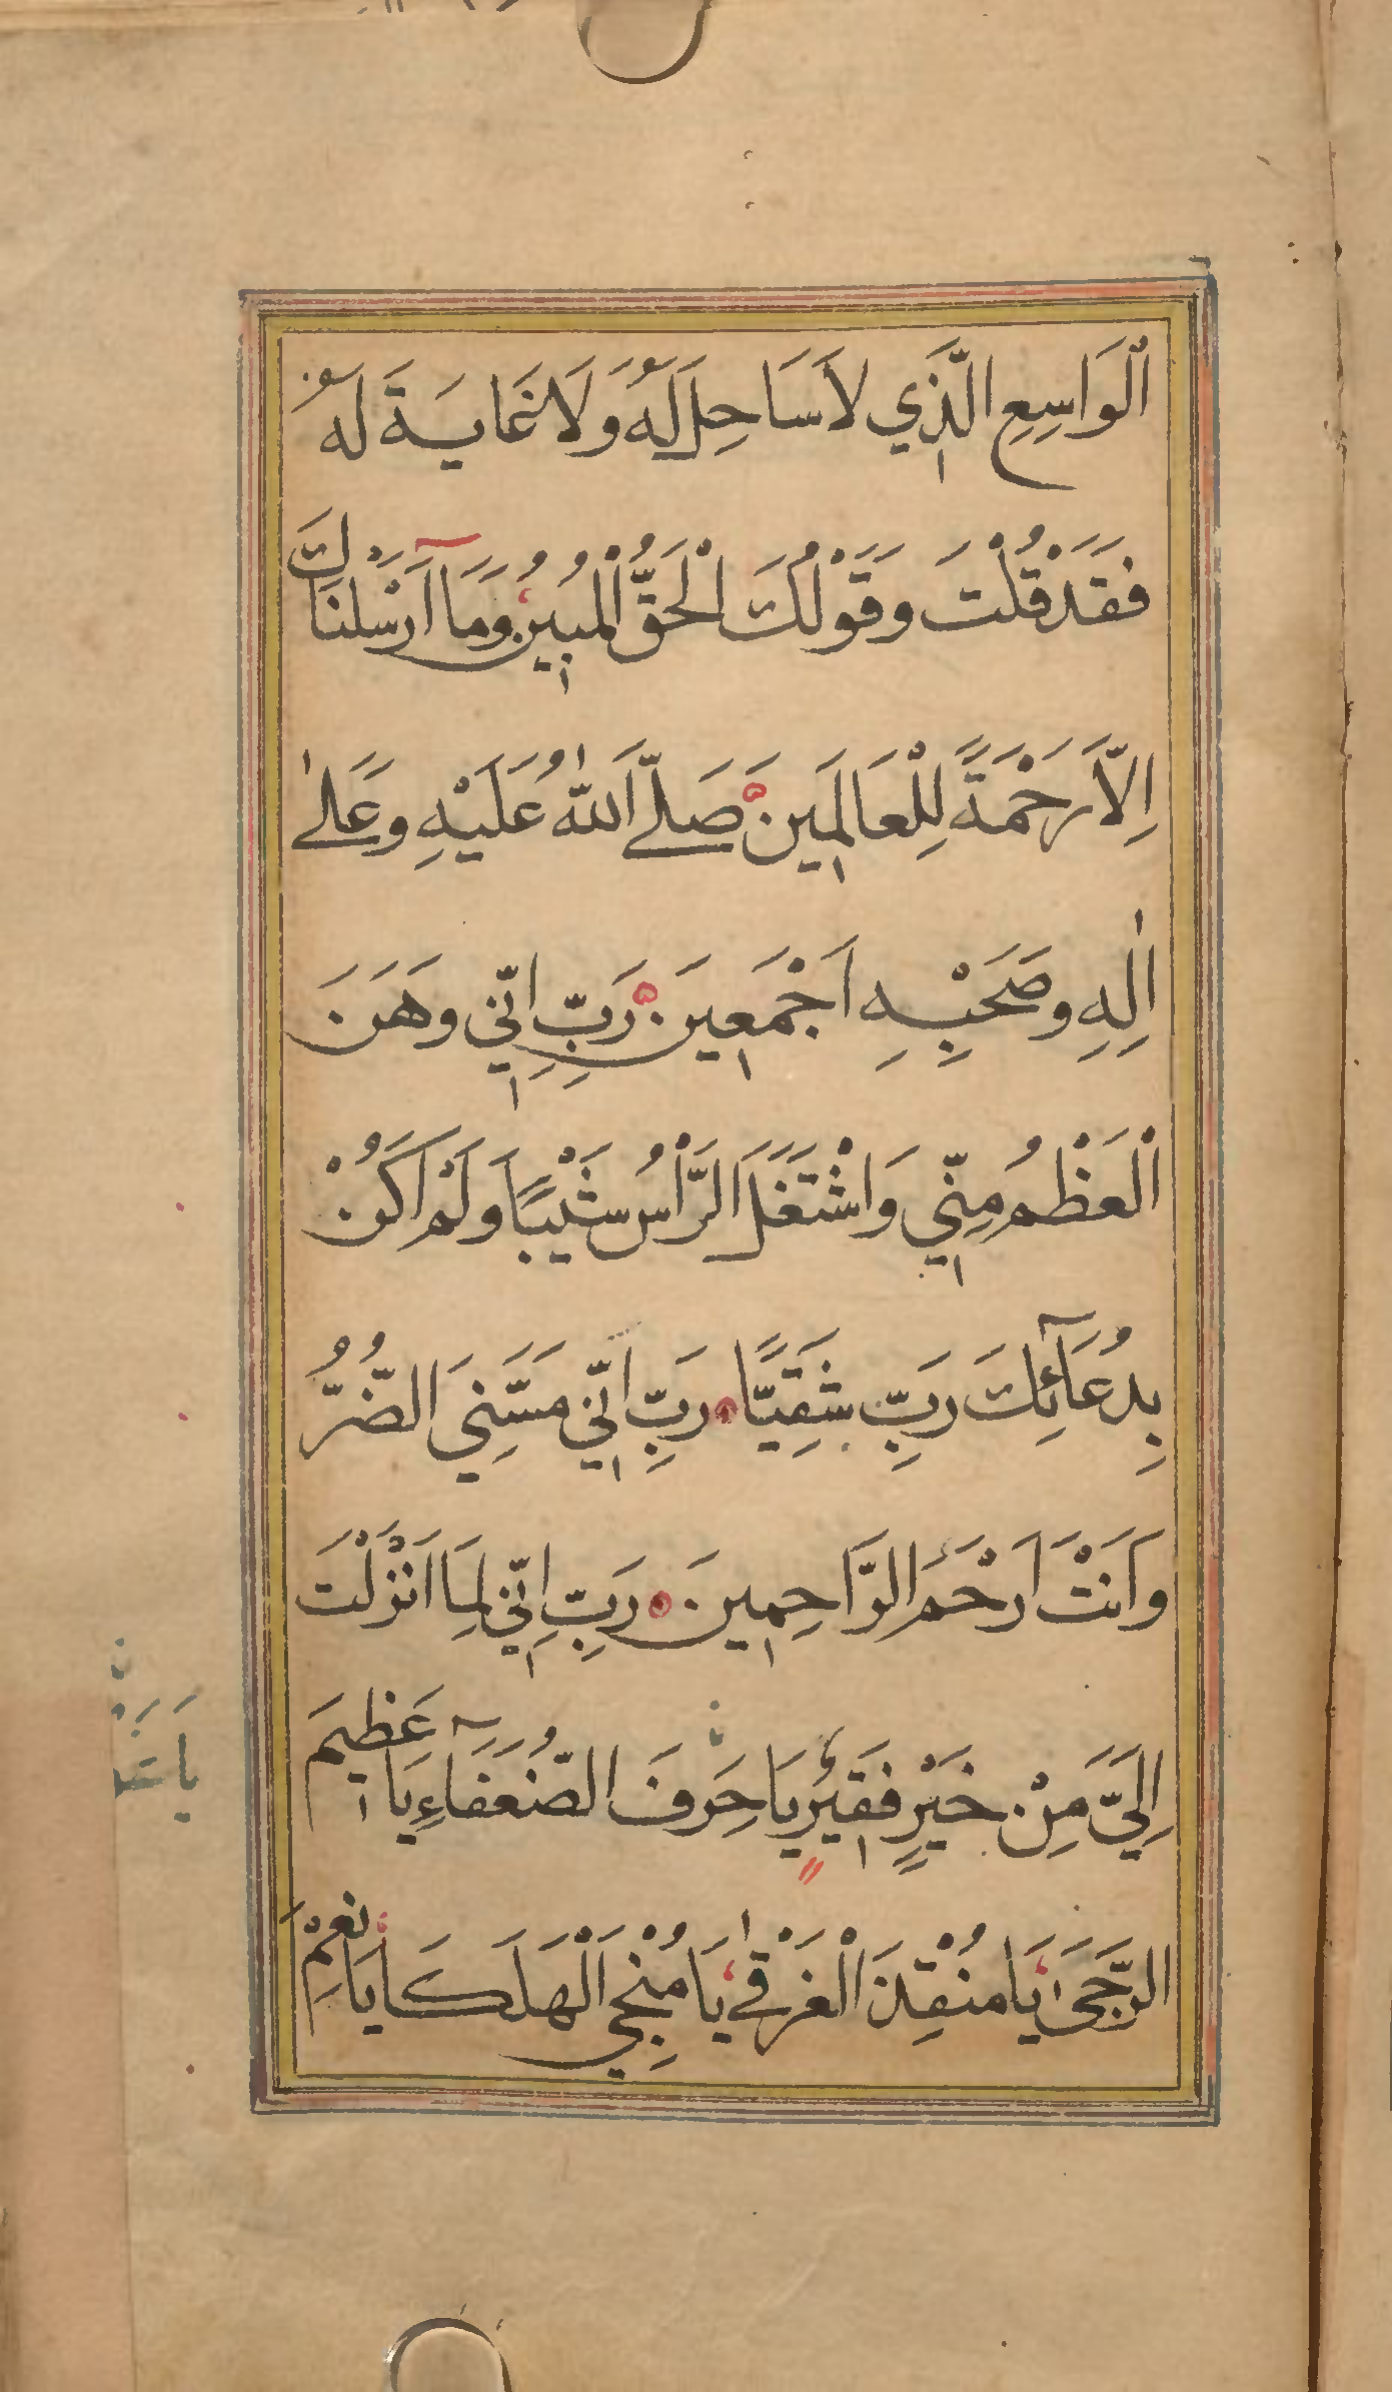 اَلْوَاسِعِ الَّذِي لَا سَاحِلَ لَهُ وَلَا غَايَةَ لَهُ
فَقَدْ قُلْتَ وَقَوْلُكَ الْحَقُّ الْمُبِينُ وَمَا اَرْسَلْنَاكَ
اِلَّا رَحْمَةً لِلْعَالَمِينَ صَلَّى اللّٰهُ عَلَيْهِ وَعَلٰى
اٰلِهِ وَصَحْبِهِ اَجْمَعِينَ رَبِّ اِنِّي وَهَنَ
اْلعَظْمُ مِنِّي وَاشْتَغَلَ الرَّاْسُ شَيْبًا وَلَمْ اَكُنْ
بِدُعَآئِكَ رَبِّ شَقِيًّا رَبِّ اِنِّي مَسَّنِيَ الضُّرُّ
وَاَنْتَ اَرْحَمُ الرَّاحِمِينَ رَبِّ اِنِّي لِمَا اَنْزَلْتَ
اِلَيَّ مِنْ خَيْرٍ فَقِيرٌ يَا حِرَفَ الضُّعَفَآءِ يَا عَظِيمَ
الرَّجَى يَا مُنْقِذَ الْغَرْقٰى يَا مُنْجِيَ الْهَلَكَا يَا نِعْمَ